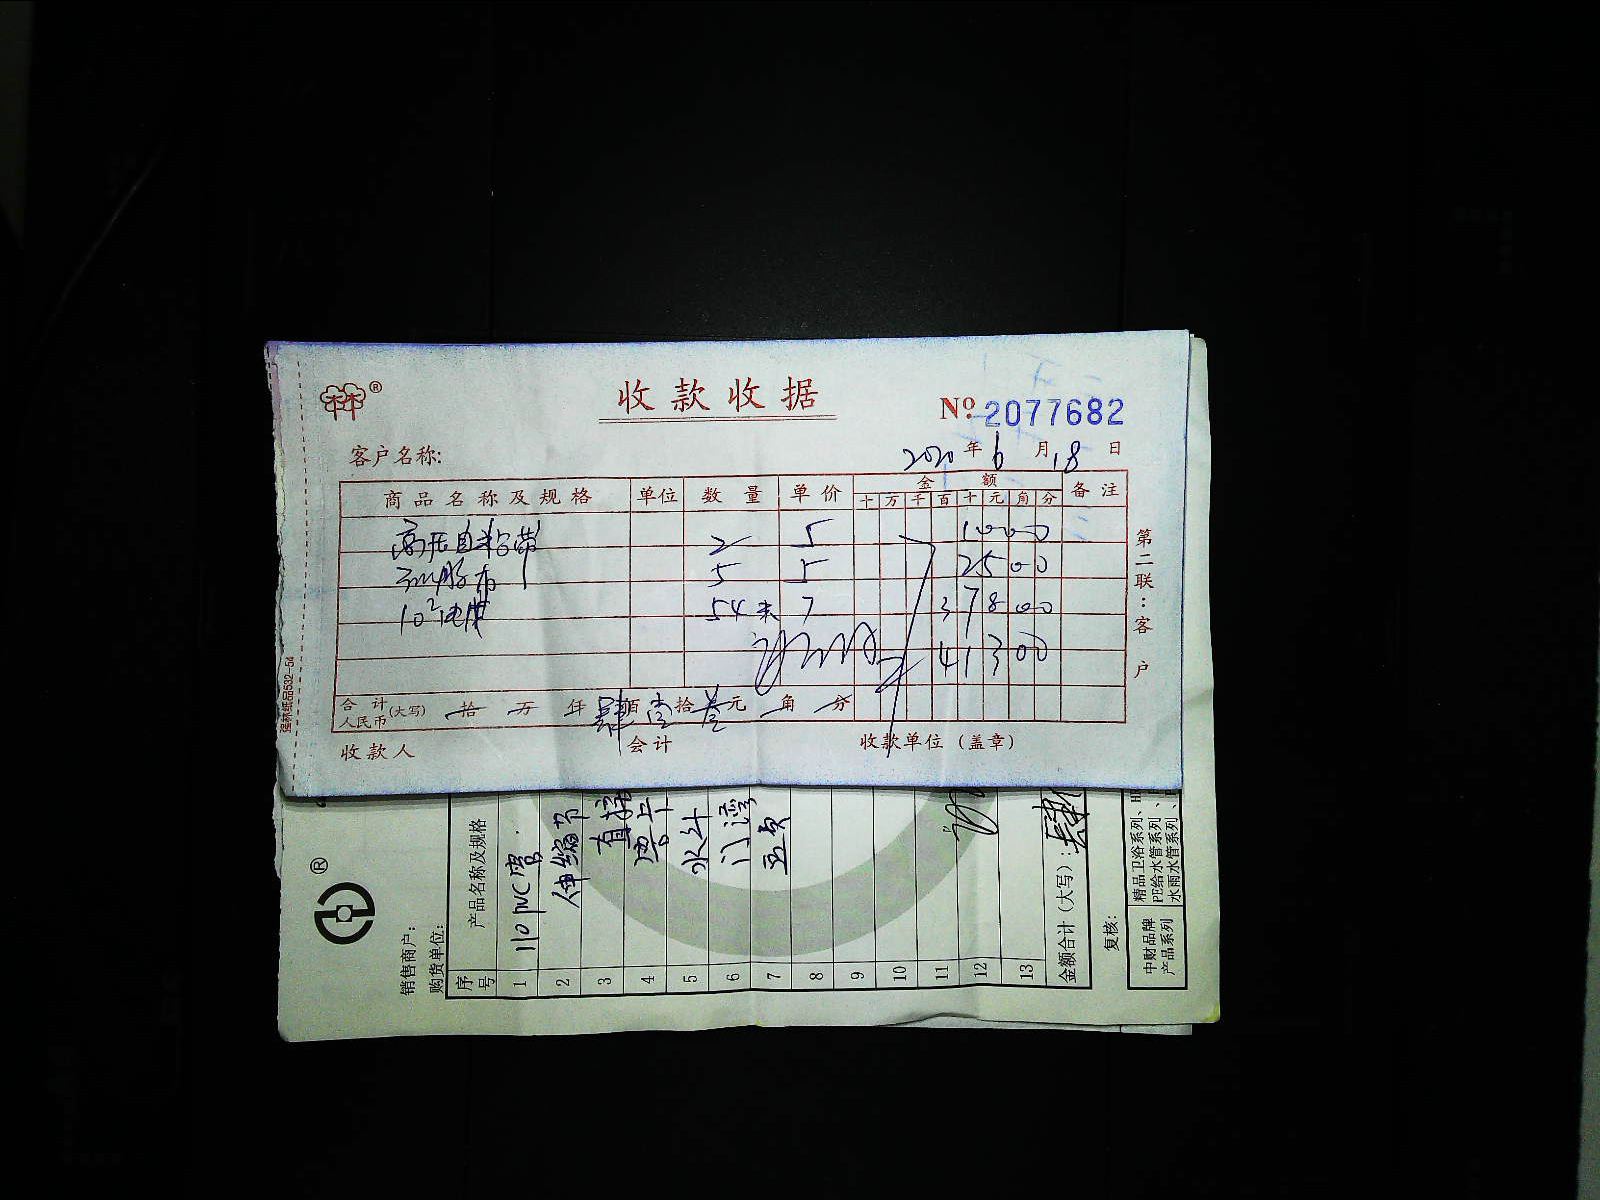 ®
收款收据
№ 2077682
客户名称:
2020年6月18日
商品名称及规格 单位 数量 单价 金额 备注
十 万 千 百 十 元 角 分
高压自粘带 2 5 1000
3m胶布 5 5 2500
10² 54米 7 37800
41300
合计人民币(大写) 拾 万 仟 肆佰壹拾叁元 角 分
收款人 会计 收款单位(盖章)
第二联:客户
®
销售商户:
购货单位:
序号 产品名称及规格
1 110 PVC管
2 伸缩节
3 直接
4 管卡
5 水斗
6 门湾
7
8
9
10
11
12
13
金额合计(大写): 肆
复核:
中财品牌产品系列
精品卫浴系列、
PE给水管系列、
水雨水管系列、